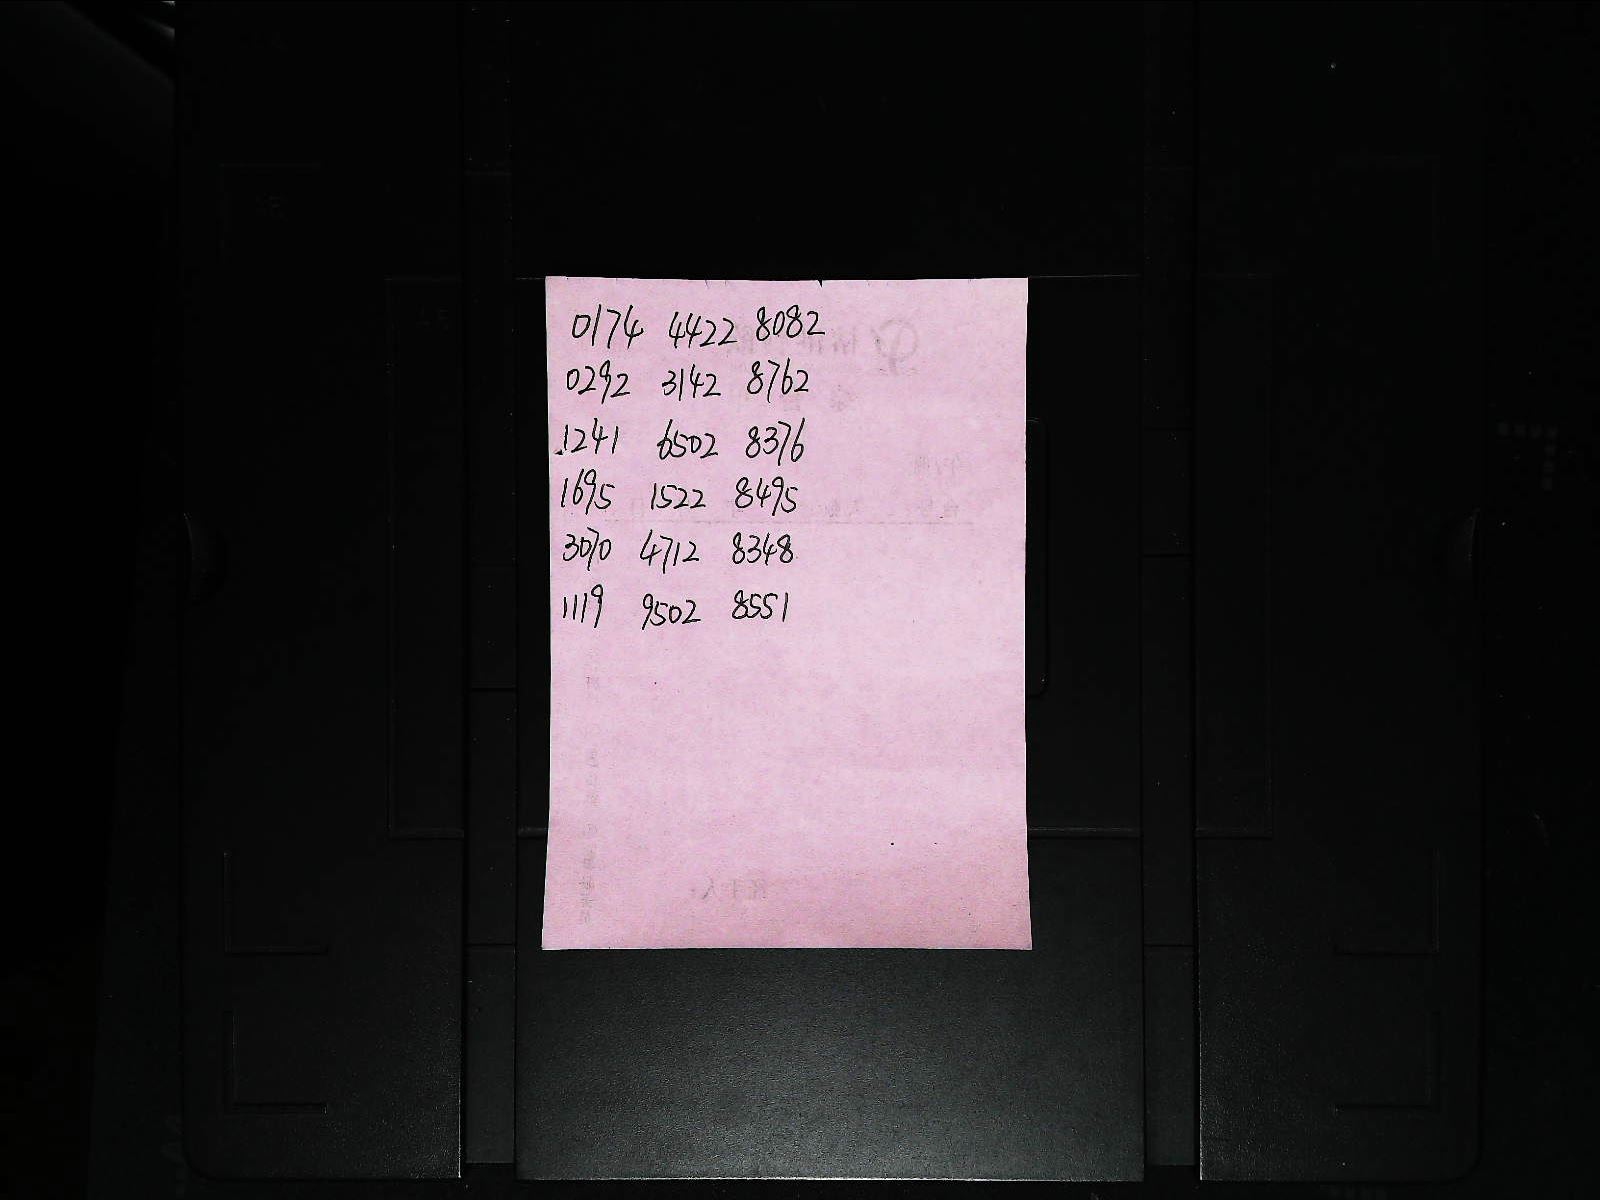 0174 4422 8082
0292 3142 8762
1241 6502 8376
1695 1522 8495
3070 4712 8348
1119 9502 8551